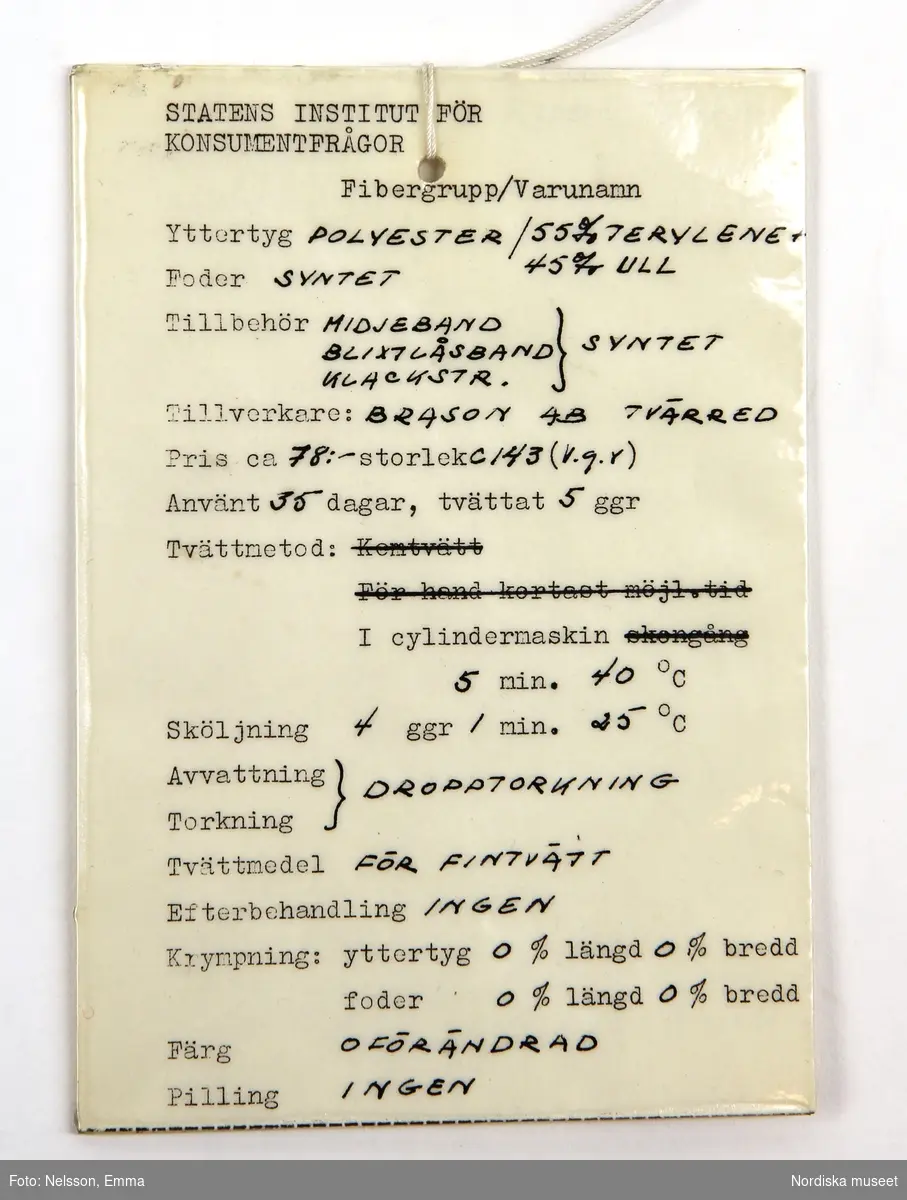 STATENS INSTITUT FÖR
KONSUMENTFRÅGOR
Fibergrupp/Varunamn
Yttertyg POLYESTER / 55% TERYLENE +
45% ULL
Foder SYNTET
Tillbehör MIDJEBAND
BLIXTLÅSBAND } SYNTET
KLACKSTR.
Tillverkare: BRASON AB TVÄRRED
Pris ca 78:- storlek C 143 (V.g.v)
Använt 35 dagar, tvättat 5 ggr
Tvättmetod: Kemtvätt
För hand kortast möjl.tid
I cylindermaskin skongång
5 min. 40 °C
Sköljning 4 ggr 1 min. 25 °C
Avvattning
} DROPPTORKNING
Torkning
Tvättmedel FÖR FINTVÄTT
Efterbehandling INGEN
Krympning: yttertyg 0 % längd 0 % bredd
foder 0 % längd 0 % bredd
Färg OFÖRÄNDRAD
Pilling INGEN
Foto: Nelsson, Emma
Nordiska museet